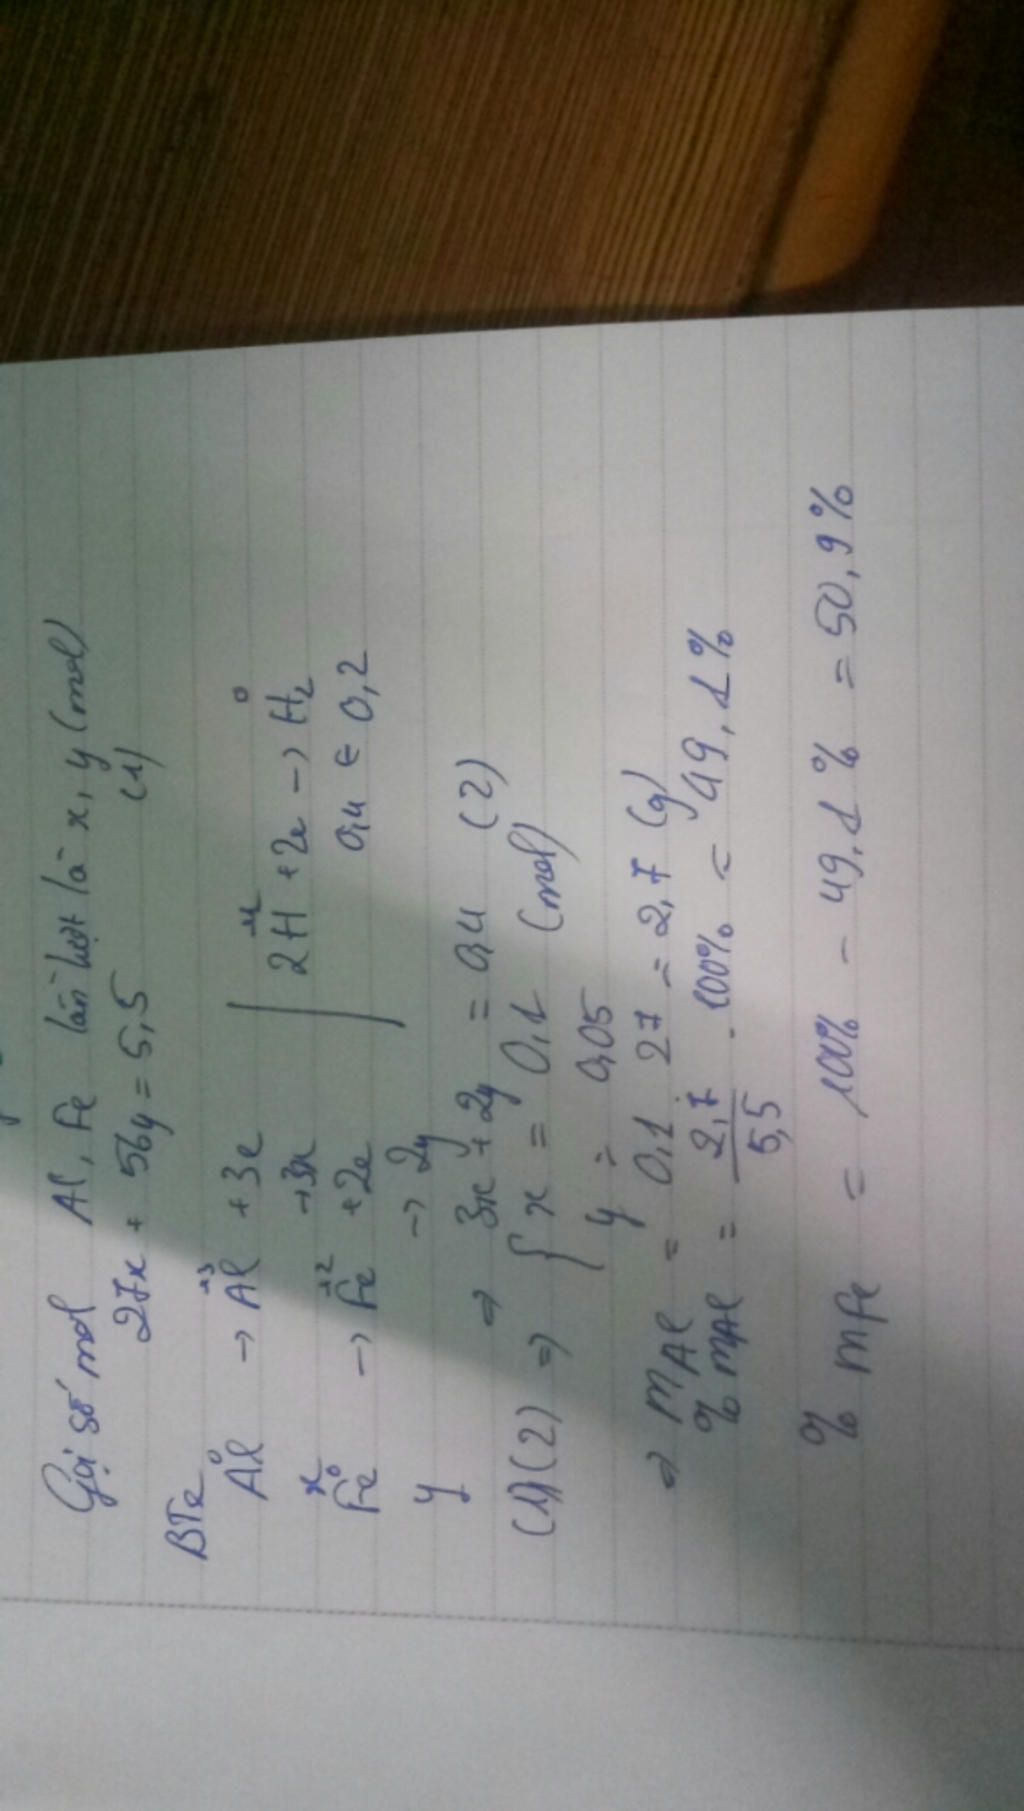 Gọi số mol Al, Fe lần lượt là x, y (mol)
27x + 56y = 5,5 (1)
BTe
Al⁰ → Al⁺³ + 3e
x → 3x
Fe⁰ → Fe⁺² + 2e
y → 2y
2H⁺¹ + 2e → H₂⁰
0,4 ← 0,2
⇒ 3x + 2y = 0,4 (2)
(1)(2) ⇒ { x = 0,1 (mol)
y = 0,05
⇒ mAl = 0,1 . 27 = 2,7 (g)
% mAl = 2,7/5,5 . 100% = 49,1%
% mFe = 100% - 49,1% = 50,9%